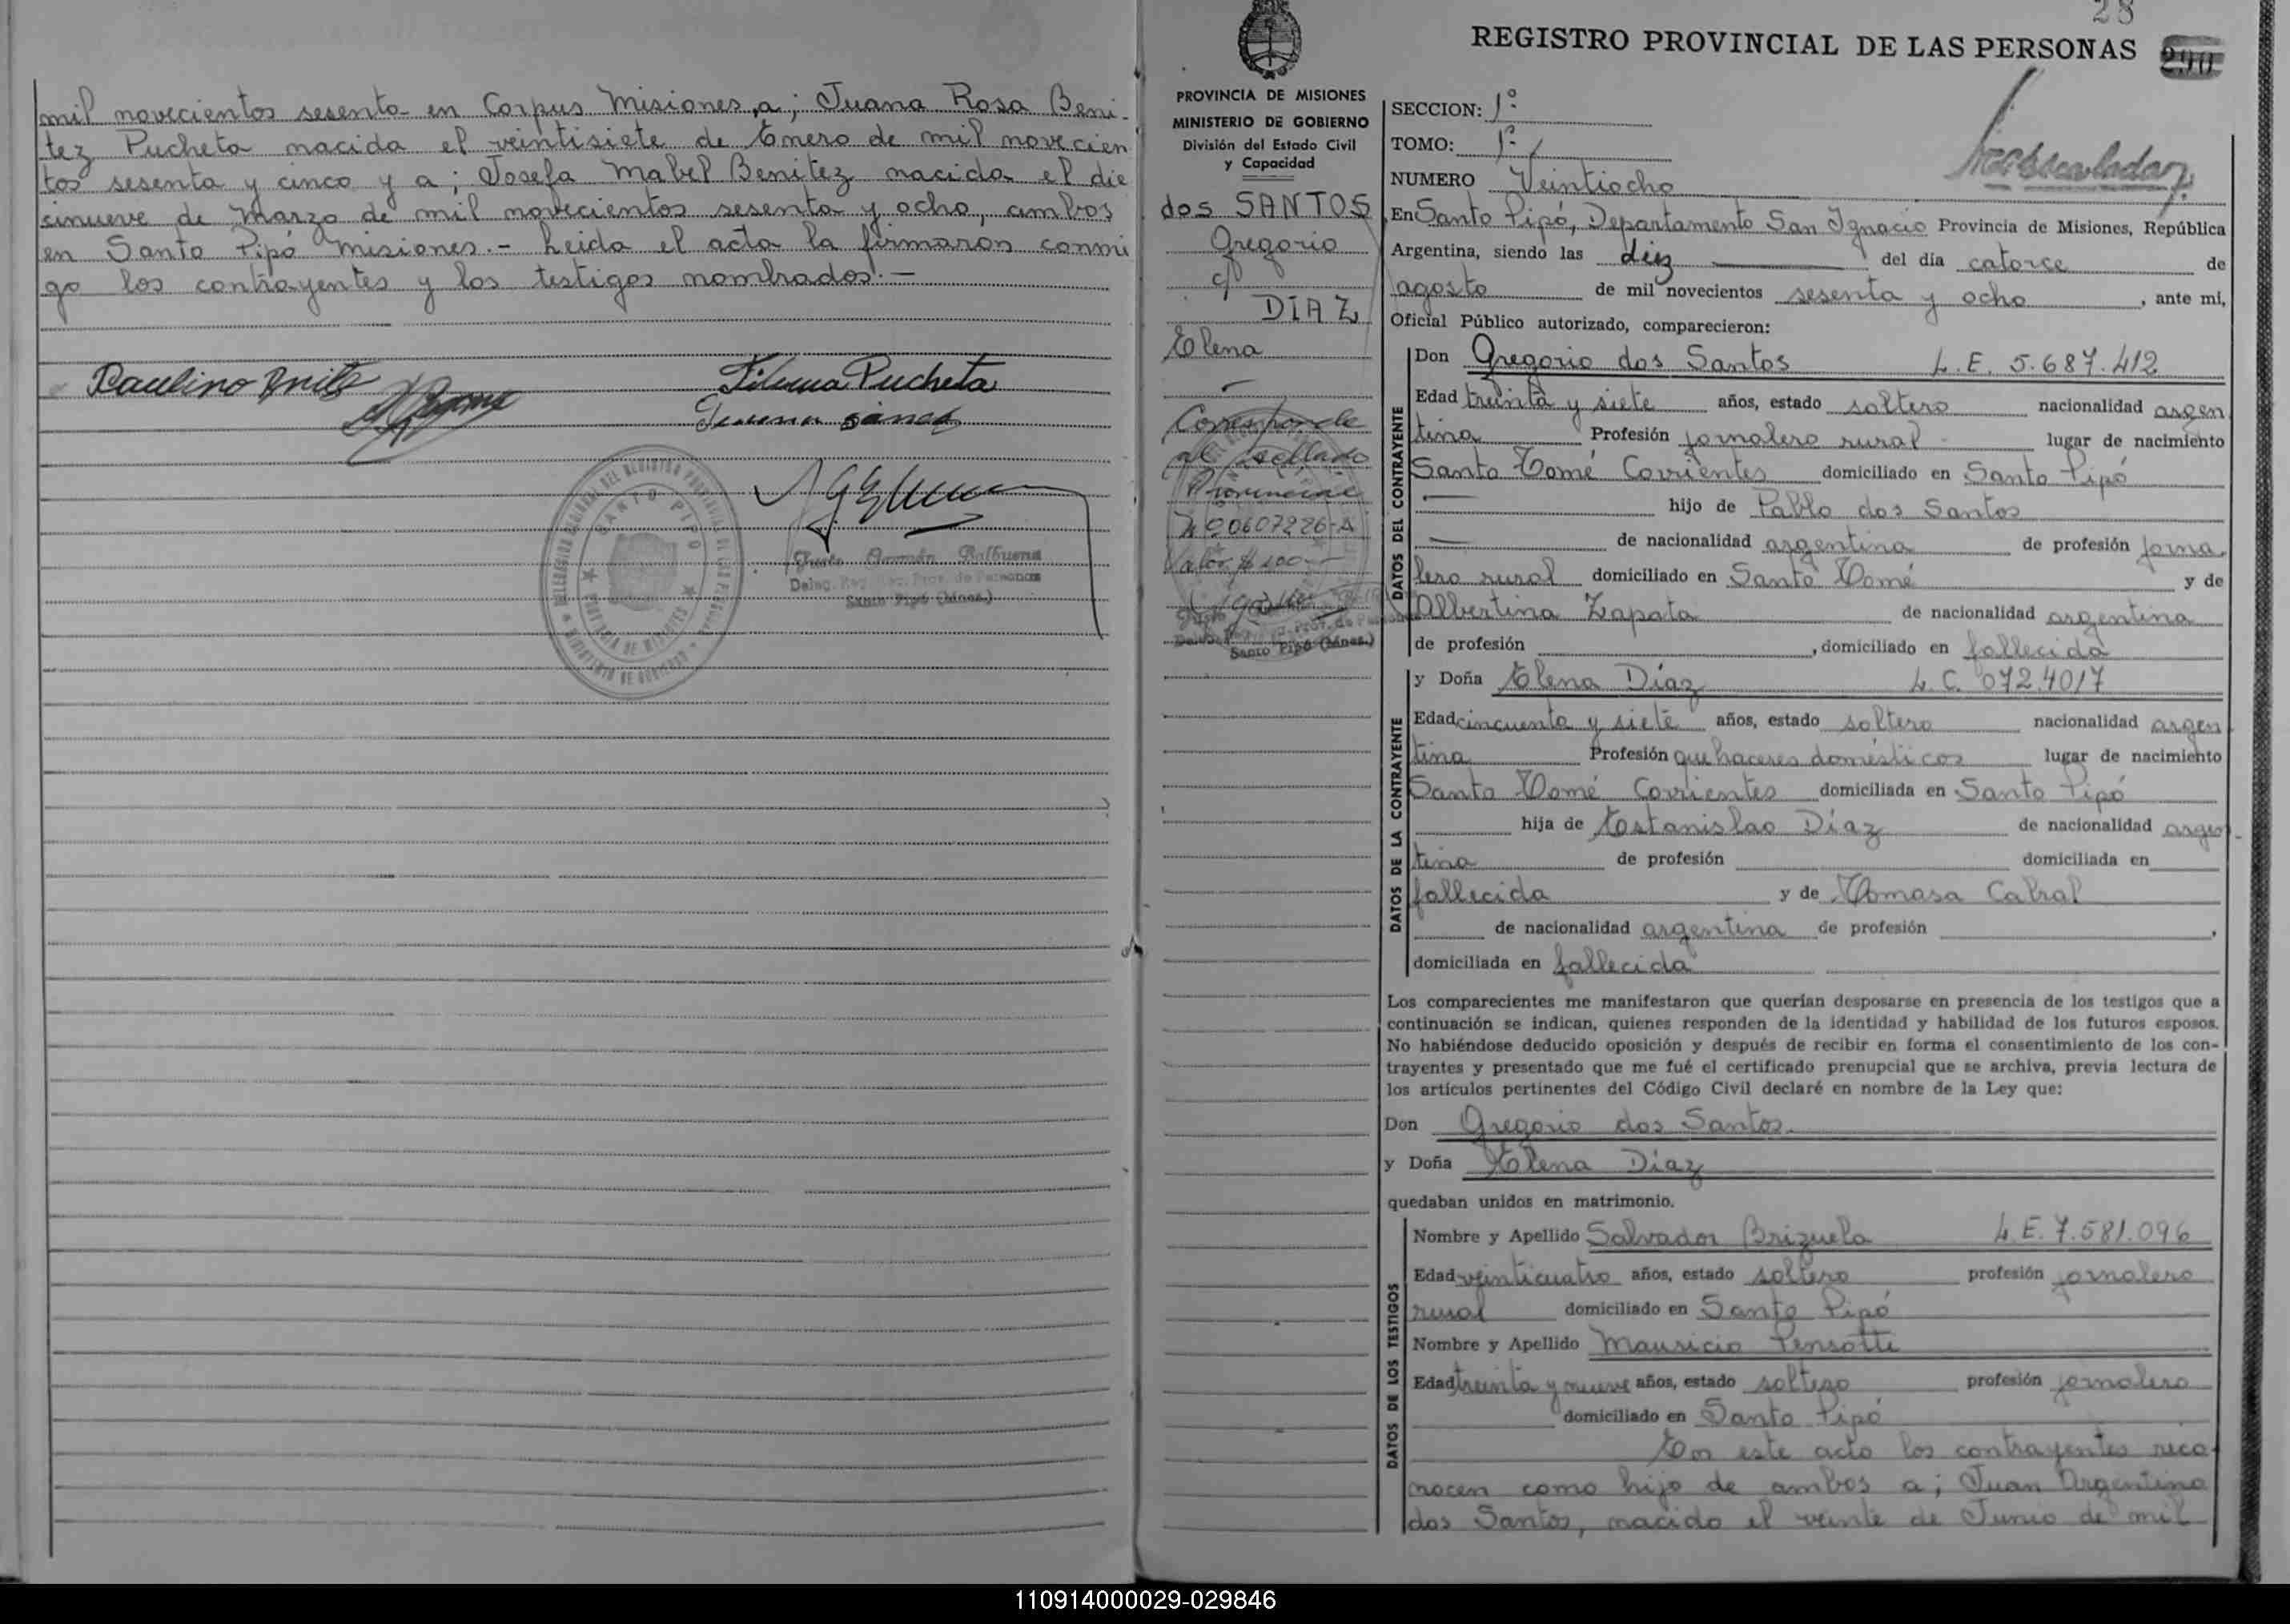 mil novecientos sesenta en Corpus Misiones, a; Juana Rosa Beni-
tez Pucheta nacida el veintisiete de Enero de mil novecien
tos sesenta y cinco y a; Josefa Mabel Benitez nacida el die
cinueve de Marzo de mil novecientos sesenta y ocho, ambos
en Santo Pipó Misiones.- Leida el acta la firmarón conmi
go los contrayentes y los testigos nombrados.-
Paulino
Pucheta
SANTO PIPO
Justo Germán Balbuena
Deleg. Reg. Prov. de Personas
Santo Pipó (Mnes.)
28
REGISTRO PROVINCIAL DE LAS PERSONAS
290
PROVINCIA DE MISIONES
MINISTERIO DE GOBIERNO
División del Estado Civil
y Capacidad
dos SANTOS
Gregorio
c/
DIAZ
Elena
Corresponde
al sellado
Provincial
Nº 00607226-A
Valor $ 100.-
Santo Pipó (Mnes.)
SECCION: 1º
TOMO: 1º
NUMERO Veintiocho
En Santo Pipó, Departamento San Ignacio Provincia de Misiones, República
Argentina, siendo las diez del día catorce de
agosto de mil novecientos sesenta y ocho, ante mí,
Oficial Público autorizado, comparecieron:
DATOS DEL CONTRAYENTE
Don Gregorio dos Santos L.E. 5.687.412
Edad treinta y siete años, estado soltero nacionalidad argen
tina Profesión jornalero rural lugar de nacimiento
Santo Tomé Corrientes domiciliado en Santo Pipó
hijo de Pablo dos Santos
de nacionalidad argentina de profesión jorna
lero rural domiciliado en Santo Tomé y de
Albertina Zapata de nacionalidad argentina
de profesión , domiciliado en fallecida
DATOS DE LA CONTRAYENTE
y Doña Elena Díaz L.C. 072.4017
Edad cincuenta y siete años, estado soltera nacionalidad argen
tina Profesión quehaceres domésticos lugar de nacimiento
Santo Tomé Corrientes domiciliada en Santo Pipó
hija de Estanislao Díaz de nacionalidad argen
tina de profesión domiciliada en
fallecida y de Tomasa Cabral
de nacionalidad argentina de profesión ,
domiciliada en fallecida
Los comparecientes me manifestaron que querían desposarse en presencia de los testigos que a
continuación se indican, quienes responden de la identidad y habilidad de los futuros esposos.
No habiéndose deducido oposición y después de recibir en forma el consentimiento de los con-
trayentes y presentado que me fué el certificado prenupcial que se archiva, previa lectura de
los artículos pertinentes del Código Civil declaré en nombre de la Ley que:
Don Gregorio dos Santos
y Doña Elena Díaz
quedaban unidos en matrimonio.
DATOS DE LOS TESTIGOS
Nombre y Apellido Salvador Brizuela L.E. 7.581.096
Edad veinticuatro años, estado soltero profesión jornalero
rural domiciliado en Santo Pipó
Nombre y Apellido Mauricio Pensotti
Edad treinta y nueve años, estado soltero profesión jornalero
domiciliado en Santo Pipó
En este acto los contrayentes reco
nocen como hijo de ambos a; Juan Argentino
dos Santos, nacido el veinte de Junio de mil
110914000029-029846